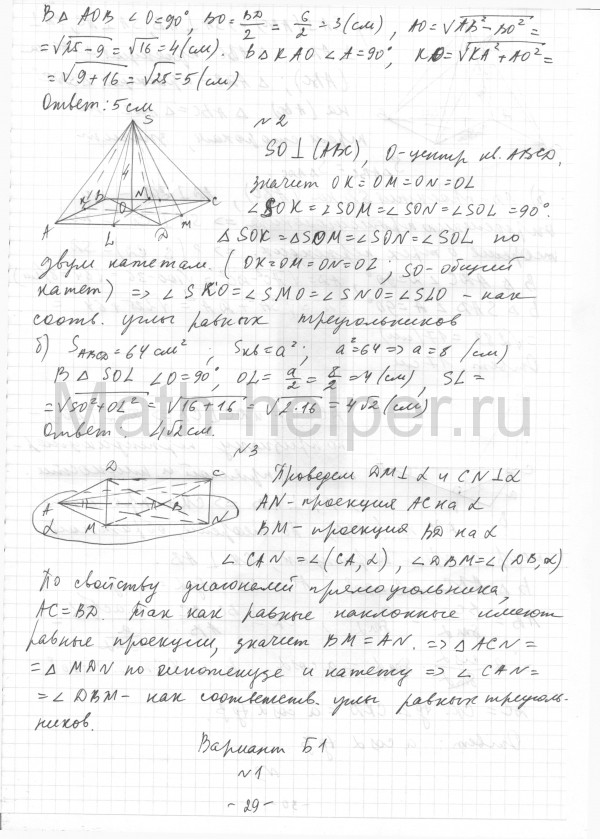 В △ AOB ∠O=90°, BO = BD/2 = 6/2 = 3 (см), AO = √AB²-BO² =
= √25-9 = √16 = 4 (см). В △ KAO ∠A=90°, KO = √KA²+AO² =
= √9+16 = √25 = 5 (см)
Ответ: 5 см
№2
S
4
K B N C
O
A L D M
SO ⊥ (ABC), O-центр кв. ABCD,
значит OK=OM=ON=OL
∠SOK=∠SOM=∠SON=∠SOL=90°.
△SOK=△SOM=∠SON=∠SOL по
двум катетам. (OK=OM=ON=OL; SO-общий
катет) => ∠SKO=∠SMO=∠SNO=∠SLO - как
соотв. углы равных треугольников
б) S ABCD = 64 см²; Sкв=a²; a²=64 => a=8 (см)
В △ SOL ∠O=90°, OL = a/2 = 8/2 = 4 (см), SL =
= √SO²+OL² = √16+16 = √2·16 = 4√2 (см)
Ответ: 4√2 см.
№3
D C
A B
α M N
Проведем DM⊥α и CN⊥α
AN-проекция AC на α
BM-проекция BD на α
∠CAN=∠(CA,α), ∠DBM=∠(DB,α)
По свойству диагоналей прямоугольника,
AC=BD. Так как равные наклонные имеют
равные проекции, значит BM=AN. => △ACN=
=△MDN по гипотенузе и катету => ∠CAN=
=∠DBM- как соответств. углы равных треуголь-
ников.
Вариант Б1
№1
-29-
Math-helper.ru